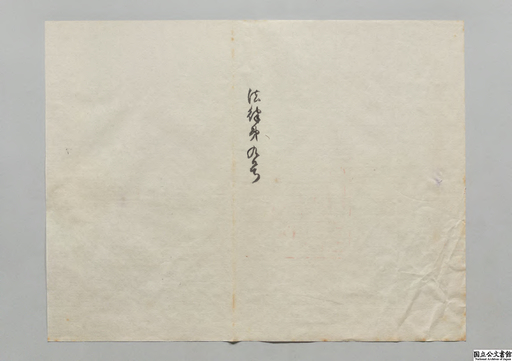 法律第九号
国立公文書館
National Archives of Japan